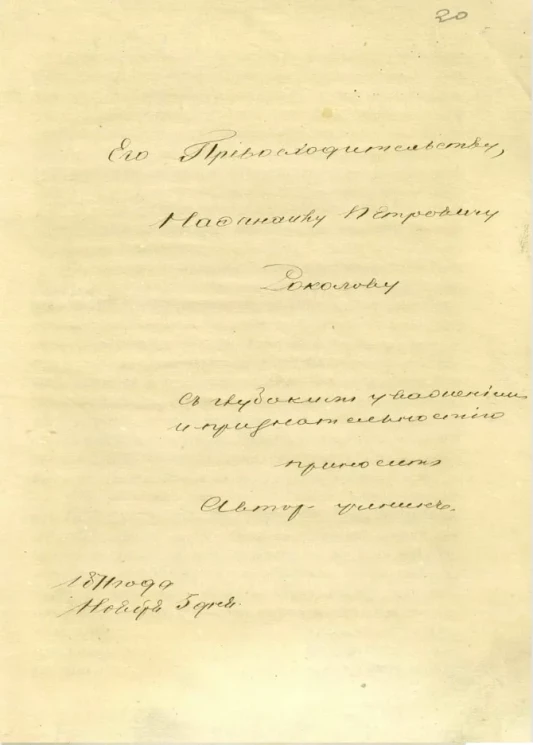 20
Его Превосходительству,
Нафанаилу Петровичу
Соколову
Съ глубокимъ уваженіемъ
и признательностію
приноситъ
Авторъ-ученикъ.
года
Ноября 5 дня.